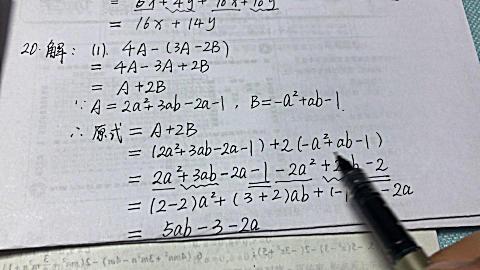 = 6x+4y+10x+10y
= 16x+14y
20.解: (1). 4A-(3A-2B)
= 4A-3A+2B
= A+2B
∵A=2a²+3ab-2a-1, B=-a²+ab-1.
∴原式=A+2B
=(2a²+3ab-2a-1)+2(-a²+ab-1)
= 2a²+3ab-2a-1-2a²+2ab-2
=(2-2)a²+(3+2)ab+(- -2a
= 5ab-3-2a